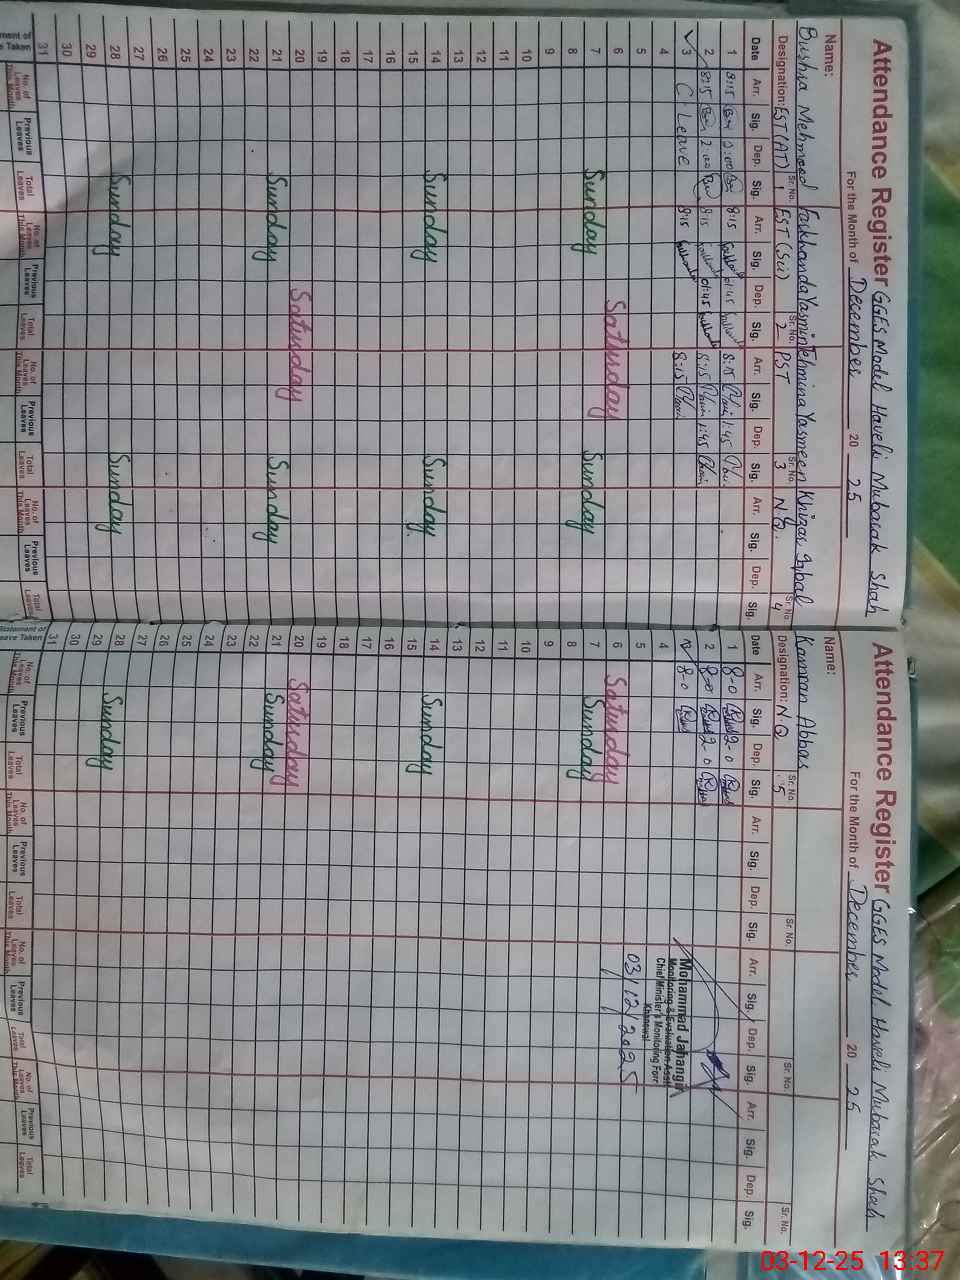 Attendance Register GGES Model Haveli Mubarak Shah
For the Month of December 20 25
Name: Bushra Mehmood Farkhanda Yasmin Tehmina Yasmeen Khizar Iqbal
Designation: EST(AT) Sr. No. 1 EST(Sci) Sr. No. 2 PST Sr. No. 3 N.Q. Sr. No. 4
Date Arr. Sig. Dep. Sig. Arr. Sig. Dep. Sig. Arr. Sig. Dep. Sig. Arr. Sig. Dep. Sig.
1 8:15 2:00 8:15 01:45 8:15 1:45
2 8:15 2:00 8:15 01:45 8:15 1:45
3 C. Leave 8:15 8:15
4
5
6 Saturday
7 Sunday Sunday
8
9
10
11
12
13
14 Sunday Sunday
15
16
17
18
19
20 Saturday
21 Sunday Sunday
22
23
24
25
26
27
28 Sunday Sunday
29
30
31
No. of Leaves This Month Previous Leaves Total Leaves No. of Leaves This Month Previous Leaves Total Leaves No. of Leaves This Month Previous Leaves Total Leaves No. of Leaves This Month Previous Leaves Total Leaves
Attendance Register GGES Model Haveli Mubarak Shah
For the Month of December 20 25
Name: Kamran Abbas
Designation: N.Q Sr. No. 5 Sr. No. Sr. No. Sr. No.
Date Arr. Sig. Dep. Sig. Arr. Sig. Dep. Sig. Arr. Sig. Dep. Sig. Arr. Sig. Dep. Sig.
1 8-0 2-0
2 8-0 2-0
3 8-0
4
5
6 Saturday
7 Sunday
8
9
10
11
12
13
14 Sunday
15
16
17
18
19
20 Saturday
21 Sunday
22
23
24
25
26
27
28 Sunday
29
30
31
Statement of Leave Taken No. of Leaves This Month Previous Leaves Total Leaves No. of Leaves This Month Previous Leaves Total Leaves No. of Leaves This Month Previous Leaves Total Leaves No. of Leaves This Month Previous Leaves Total Leaves
Mohammad Jahangir
Monitoring & Evaluation Asst
Chief Minister's Monitoring Forc
Khanewal
03/12/2025
03-12-25 13:37